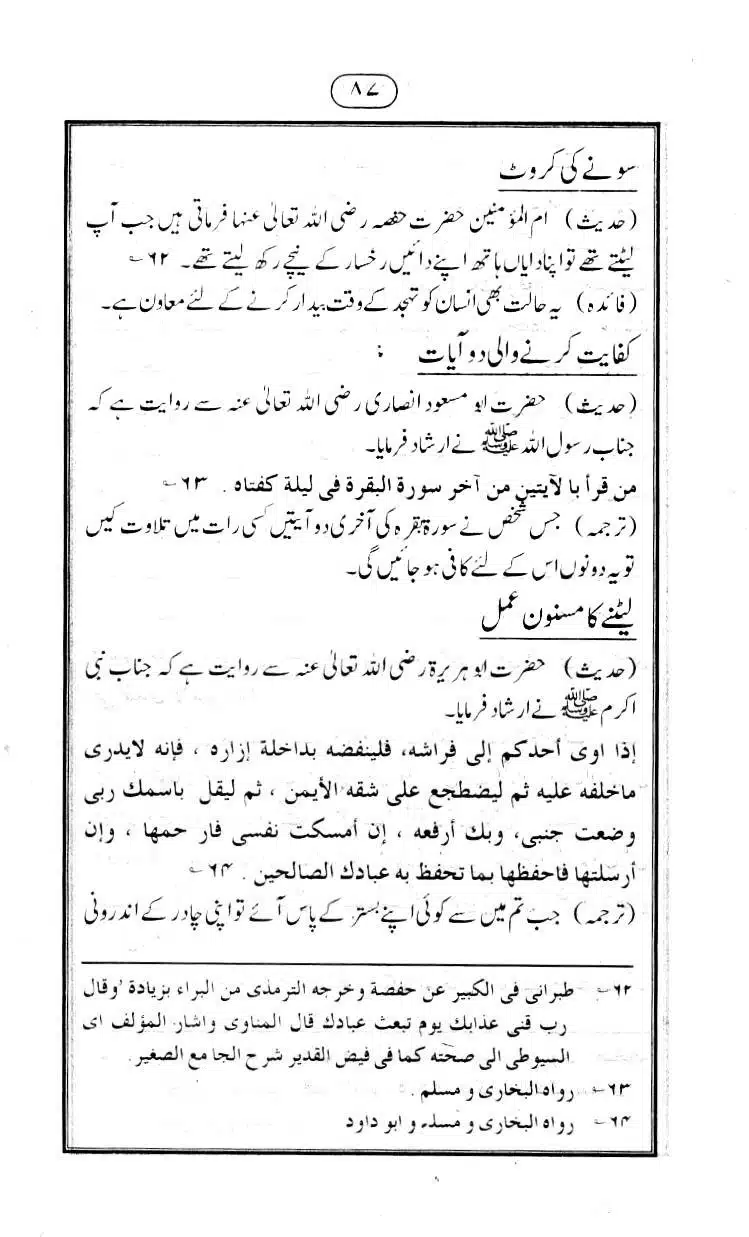 ۸۷
سونے کی کروٹ
(حدیث) ام المؤمنین حضرت حفصہ رضی اللہ تعالیٰ عنہا فرماتی ہیں جب آپ
لیٹتے تھے تو اپنا دایاں ہاتھ اپنے دائیں رخسار کے نیچے رکھ لیتے تھے۔ ۶۲ ؎
(فائدہ) یہ حالت بھی انسان کو تہجد کے وقت بیدار کرنے کے لئے معاون ہے۔
کفایت کرنے والی دو آیات :
(حدیث) حضرت ابو مسعود انصاری رضی اللہ تعالیٰ عنہ سے روایت ہے کہ
جناب رسول اللہ ﷺ نے ارشاد فرمایا۔
من قرأ با لآیتین من آخر سورة البقرة فی لیلة کفتاه . ۶۳ ؎
(ترجمہ) جس شخص نے سورۃ بقرہ کی آخری دو آیتیں کسی رات میں تلاوت کیں
تو یہ دونوں اس کے لئے کافی ہو جائیں گی۔
لیٹنے کا مسنون عمل
(حدیث) حضرت ابو ہریرۃ رضی اللہ تعالیٰ عنہ سے روایت ہے کہ جناب نبی
اکرم ﷺ نے ارشاد فرمایا۔
إذا اوی أحدکم إلی فراشه، فلینفضه بداخلة إزاره ، فإنه لایدری
ماخلفه علیه ثم لیضطجع علی شقه الأیمن ، ثم لیقل باسمك ربی
وضعت جنبی، وبك أرفعه ، إن أمسکت نفسی فار حمها ، وإن
أرسلتها فاحفظها بما تحفظ به عبادك الصالحین . ۶۴ ؎
(ترجمہ) جب تم میں سے کوئی اپنے بستر کے پاس آئے تو اپنی چادر کے اندرونی
۶۲ ؎ طبرانی فی الکبیر عن حفصة وخرجه الترمذی من البراء بزیادة 'وقال
رب قنی عذابك یوم تبعث عبادك قال المناوی واشار المؤلف ای
السیوطی الی صحته کما فی فیض القدیر شرح الجا مع الصغیر .
۶۳ ؎ رواه البخاری و مسلم .
۶۴ ؎ رواه البخاری و مسلم و ابو داود